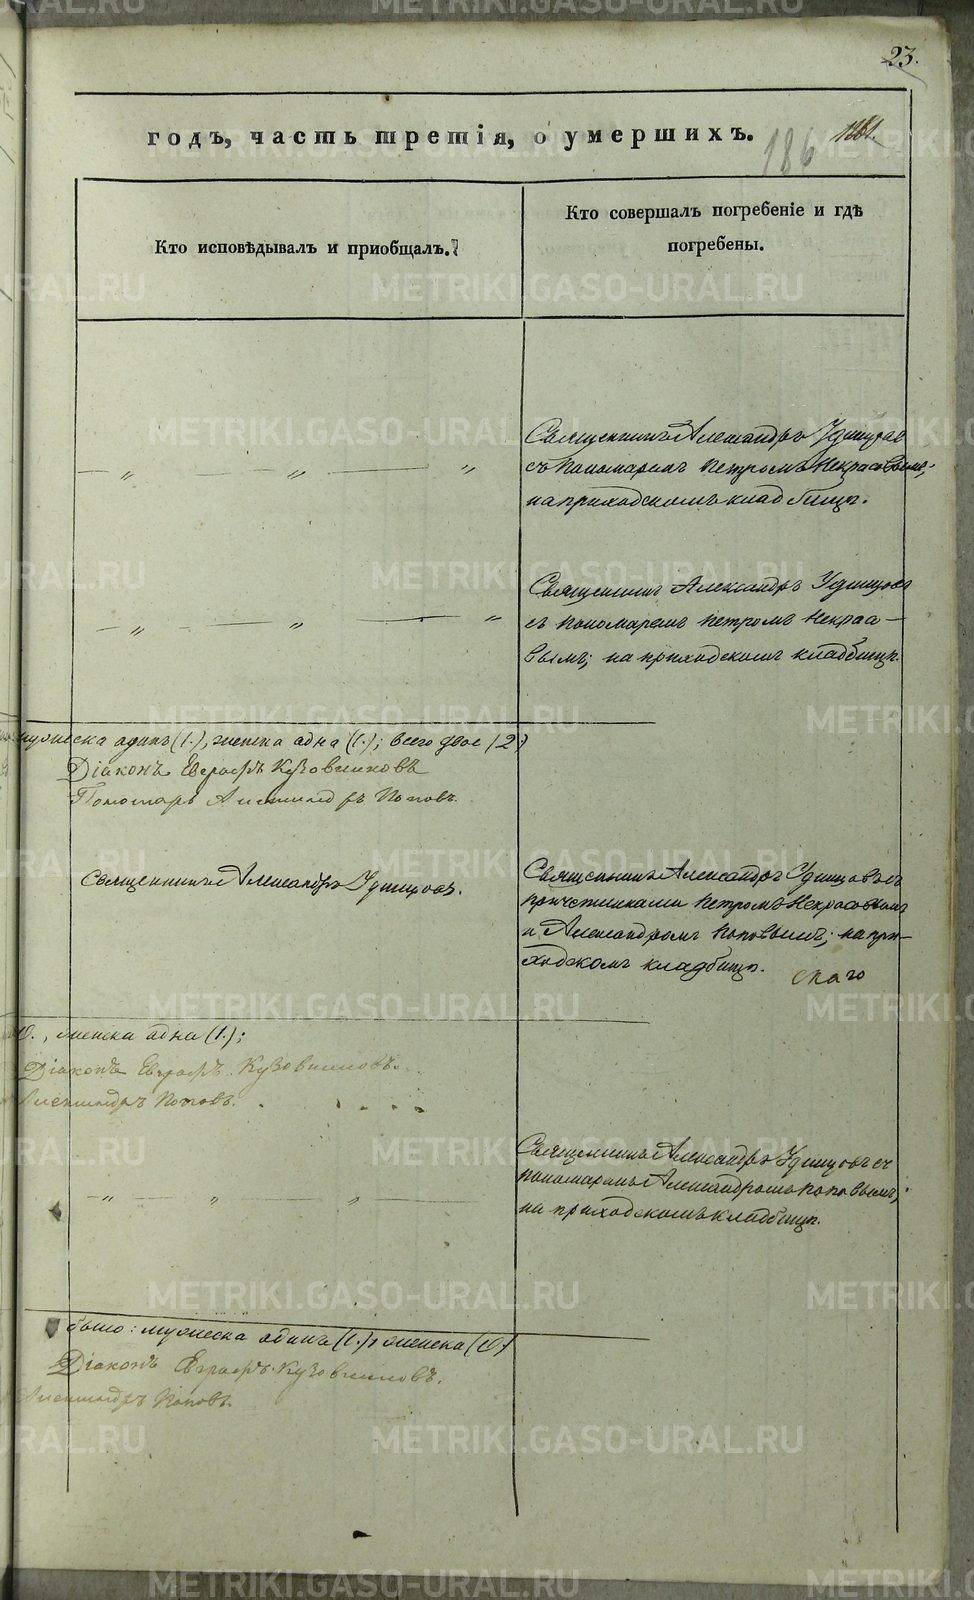 23.
годъ, часть третія, о умершихъ.
186
Кто исповѣдывалъ и пріобщалъ.
Кто совершалъ погребеніе и гдѣ
погребены.
Священникъ Александръ Удинцов
съ пономаремъ Петромъ Некрасовымъ;
на приходскомъ кладбищѣ.
— „ — „ — „
Священникъ Александръ Удинцовъ
съ пономаремъ Петромъ Некрасо-
вымъ; на приходскомъ кладбищѣ.
— „ — „ — „
мужеска одинъ (1.), женска одна (1.); всего двое (2)
Діаконъ Евграфъ Кузовниковъ
Пономарь Александръ Поповъ.
Священникъ Александръ Удинцовъ.
Священникъ Александръ Удинцовъ съ
причетниками Петромъ Некрасовымъ
и Александромъ Поповымъ; на при-
ходскомъ кладбищѣ.
скаго
0., женска одна (1.);
Діаконъ Евграфъ Кузовниковъ.
Александръ Поповъ.
Священникъ Александръ Удинцовъ съ
пономаремъ Александромъ Поповымъ;
на приходскомъ кладбищѣ.
— „ — „ — „
было: мужеска одинъ (1.), женска (0)
Діаконъ Евграфъ Кузовниковъ.
Александръ Поповъ.
METRIKI.GASO-URAL.RU